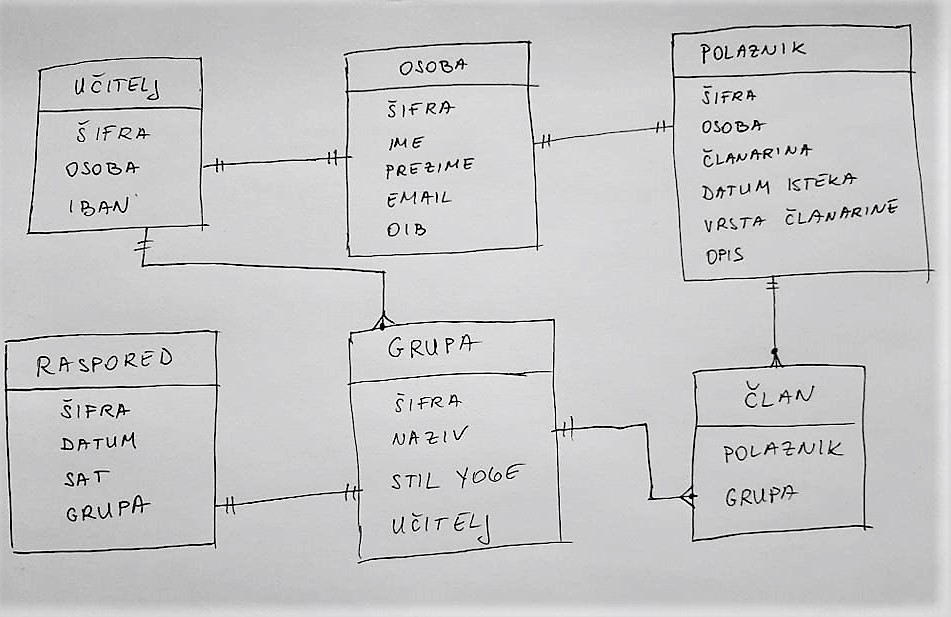 UČITELJ
ŠIFRA
OSOBA
IBAN
OSOBA
ŠIFRA
IME
PREZIME
EMAIL
OIB
POLAZNIK
ŠIFRA
OSOBA
ČLANARINA
DATUM ISTEKA
VRSTA ČLANARINE
OPIS
RASPORED
ŠIFRA
DATUM
SAT
GRUPA
GRUPA
ŠIFRA
NAZIV
STIL YOGE
UČITELJ
ČLAN
POLAZNIK
GRUPA